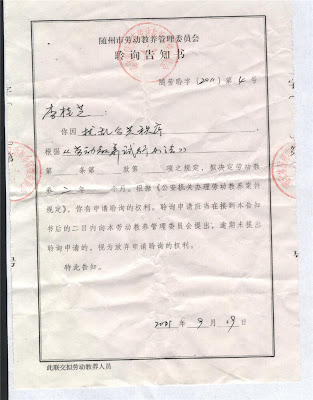 随州市劳动教养管理委员会
聆询告知书
随劳聆字(2011)第4号
李桂芝:
你因扰乱公共秩序
根据《劳动教养试行办法》
第 条第 款第 项之规定,拟决定劳动教
养二年 个月。根据《公安机关办理劳动教养案件
规定》,你有申请聆询的权利。聆询申请应当在接到本告知
书后的二日内向本劳动教养管理委员会提出,逾期未提出
聆询申请的,视为放弃申请聆询的权利。
特此告知。
年9月19日
此联交拟劳动教养人员